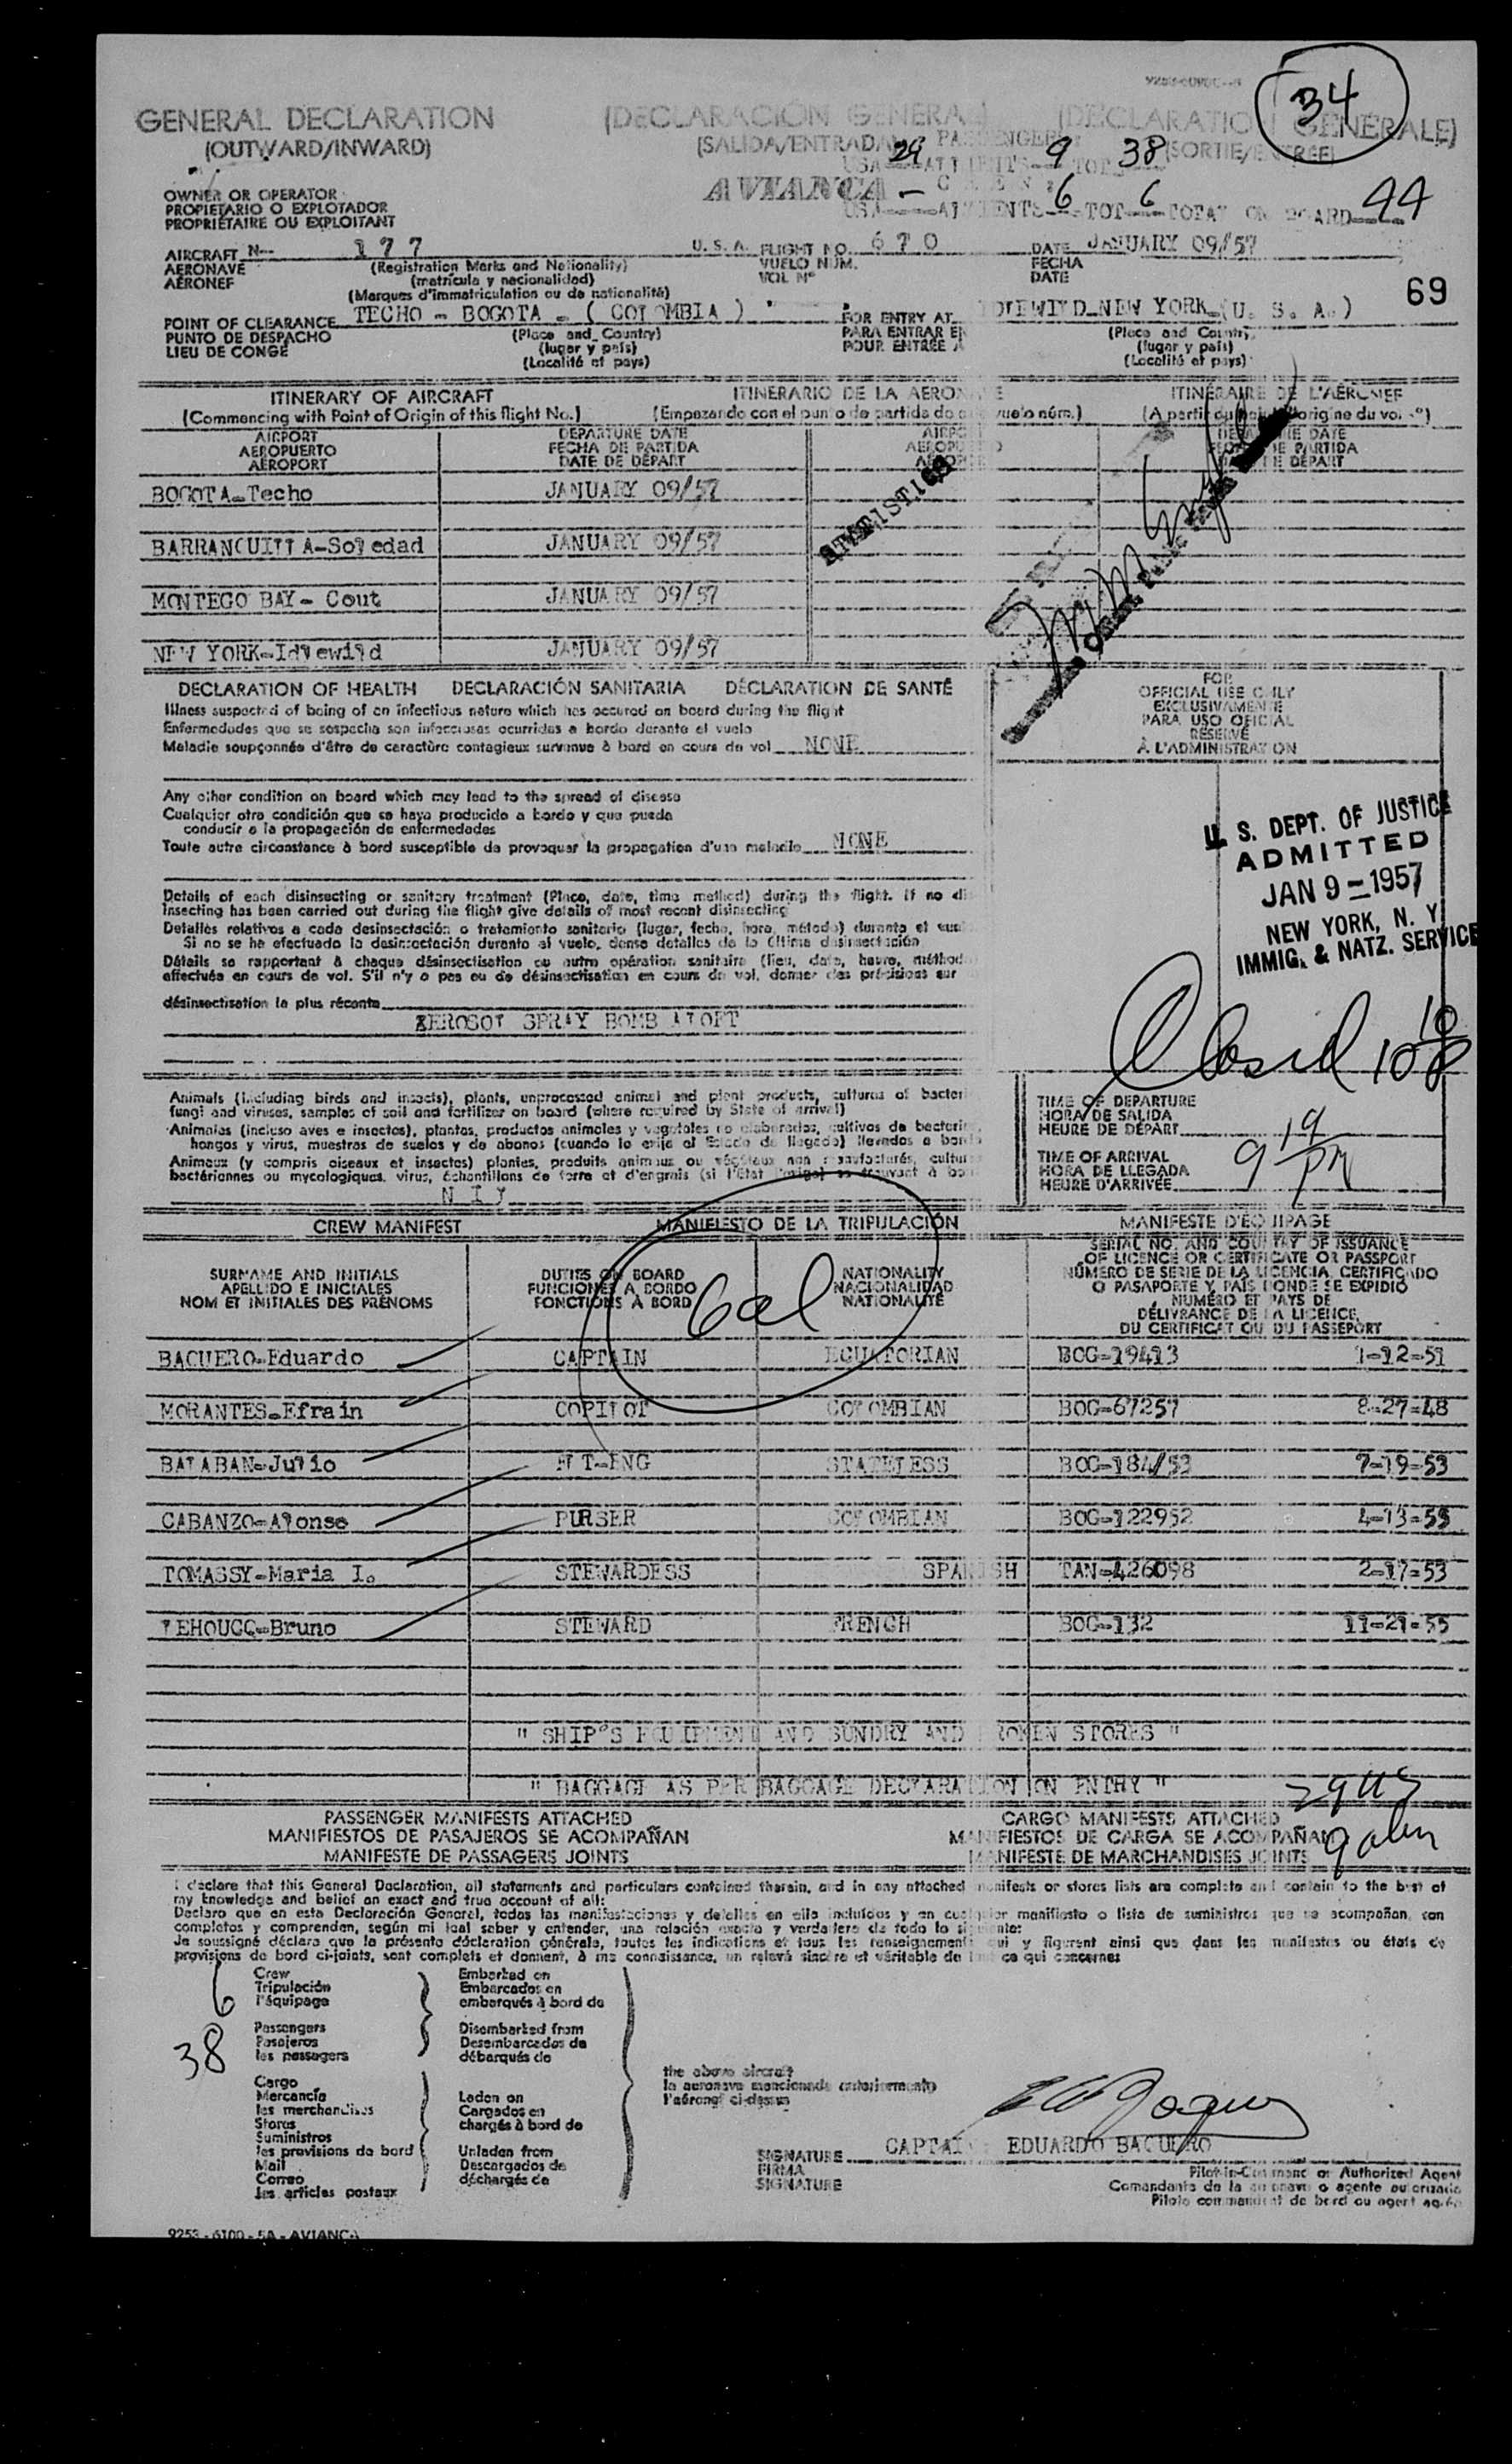 34
GENERAL DECLARATION (DECLARACIÓN GENERAL) (DÉCLARATION GÉNÉRALE)
(OUTWARD/INWARD) (SALIDA/ENTRADA) (SORTIE/ENTRÉE)
PASSENGERS
USA 29 9 TOT 38
OWNER OR OPERATOR
PROPIETARIO O EXPLOTADOR
PROPRIÉTAIRE OU EXPLOITANT
AVIANCA
USA - 6 TOT 6 TOTAL ON BOARD 44
AIRCRAFT N- 177 U. S. A. FLIGHT NO. 670 DATE JANUARY 09/57
AERONAVE (Registration Marks and Nationality) VUELO NÚM. FECHA
AÉRONEF (matrícula y nacionalidad) VOL Nº DATE
(Marques d'immatriculation ou de nationalité)
69
POINT OF CLEARANCE TECHO - BOGOTA - ( COLOMBIA ) FOR ENTRY AT IDLEWILD-NEW YORK-(U. S. A.)
PUNTO DE DESPACHO (Place and Country) PARA ENTRAR EN (Place and Country)
LIEU DE CONGÉ (lugar y país) POUR ENTRÉE A (lugar y país)
(Localité et pays) (Localité et pays)
ITINERARY OF AIRCRAFT ITINERARIO DE LA AERONAVE ITINÉRAIRE DE L'AÉRONEF
(Commencing with Point of Origin of this flight No.) (Empezando con el punto de partida de vuelo núm.) (A partir origine du vol nº)
AIRPORT DEPARTURE DATE
AEROPUERTO FECHA DE PARTIDA
AÉROPORT DATE DE DÉPART
BOGOTA-Techo JANUARY 09/57
STATISTICS
BARRANQUILLA-Soledad JANUARY 09/57
MONTEGO BAY- Cout JANUARY 09/57
NEW YORK-Idlewild JANUARY 09/57
DECLARATION OF HEALTH DECLARACIÓN SANITARIA DÉCLARATION DE SANTÉ
Illness suspected of being of an infectious nature which has occured on board during the flight
Enfermedades que se sospecha son infecciosas ocurridas a bordo durante el vuelo
Maladie soupçonnée d'être de caractère contagieux survenue à bord en cours de vol NONE
FOR
OFFICIAL USE ONLY
EXCLUSIVAMENTE
PARA USO OFICIAL
RÉSERVÉ
À L'ADMINISTRATION
Any other condition on board which may lead to the spread of disease
Cualquier otra condición que se haya producido a bordo y que pueda
conducir a la propagación de enfermedades
Toute autre circonstance à bord susceptible de provoquer la propagation d'une maladie NONE
U. S. DEPT. OF JUSTICE
ADMITTED
JAN 9 - 1957
NEW YORK, N. Y.
IMMIG. & NATZ. SERVICE
Details of each disinsecting or sanitary treatment (Place, date, time method) during the flight. If no di
insecting has been carried out during the flight give details of most recent disinsecting
Detalles relativos a cada desinsectación o tratamiento sanitario (lugar, fecha, hora, método) durante el vuelo
Si no se ha efectuado la desinsectación durante el vuelo, dense detalles de la última desinsectación
Détails se rapportant à chaque désinsectisation ou autre opération sanitaire (lieu, date, heure, méthode
effectuée en cours de vol. S'il n'y a pas eu de désinsectisation en cours de vol, donner des précisions sur
désinsectisation la plus récente
AEROSOL SPRAY BOMB ALOFT
Animals (including birds and insects), plants, unprocessed animal and plant products, cultures of bacteri
fungi and viruses, samples of soil and fertilizer on board (where required by State of arrival)
Animales (incluso aves e insectos), plantas, productos animales y vegetales no elaborados, cultivos de bacterias,
hongos y virus, muestras de suelos y de abonos (cuando lo exija el Estado de llegada) llevados a bordo
Animaux (y compris oiseaux et insectes) plantes, produits animaux ou végétaux non manufacturés, cultures
bactériennes ou mycologiques, virus, échantillons de terre et d'engrais (si l'État l'exige) se trouvant à bord
N I L
TIME OF DEPARTURE
HORA DE SALIDA
HEURE DE DÉPART
TIME OF ARRIVAL
HORA DE LLEGADA
HEURE D'ARRIVÉE
9 19 PM
CREW MANIFEST MANIFIESTO DE LA TRIPULACIÓN MANIFESTE D'ÉQUIPAGE
SURNAME AND INITIALS DUTIES ON BOARD NATIONALITY
APELLIDO E INICIALES FUNCIONES A BORDO NACIONALIDAD
NOM ET INITIALES DES PRÉNOMS FONCTIONS À BORD NATIONALITÉ
SERIAL NO. AND COUNTRY OF ISSUANCE
OF LICENCE OR CERTIFICATE OR PASSPORT
NÚMERO DE SERIE DE LA LICENCIA, CERTIFICADO
O PASAPORTE Y PAÍS DONDE SE EXPIDIÓ
NUMÉRO ET PAYS DE
DÉLIVRANCE DE LA LICENCE,
DU CERTIFICAT OU DU PASSEPORT
BAQUERO-Eduardo CAPTAIN ECUATORIAN BOG-19413 1-12-51
MORANTES-Efrain COPILOT COLOMBIAN BOG-67257 8-27-48
BALABAN-Julio FLT-ENG STATELESS BOG-184/53 7-19-53
CABANZO-Alonso PURSER COLOMBIAN BOG-122952 4-13-55
TOMASSY-Maria I. STEWARDESS SPANISH TAN-426098 2-17-53
LEHOUCQ-Bruno STEWARD FRENCH BOG-132 11-21-55
" SHIP'S EQUIPMENT AND SUNDRY AND BROKEN STORES "
" BAGGAGE AS PER BAGGAGE DECLARATION ON ENTRY "
29 US
9 alien
PASSENGER MANIFESTS ATTACHED CARGO MANIFESTS ATTACHED
MANIFIESTOS DE PASAJEROS SE ACOMPAÑAN MANIFIESTOS DE CARGA SE ACOMPAÑAN
MANIFESTE DE PASSAGERS JOINTS MANIFESTE DE MARCHANDISES JOINTS
I declare that this General Declaration, all statements and particulars contained therein, and in any attached manifests or stores lists are complete and contain to the best of
my knowledge and belief an exact and true account of all:
Declaro que en esta Declaración General, todas las manifestaciones y detalles en ella incluidos y en cualquier manifiesto o lista de suministros que se acompañan, son
completos y comprenden, según mi leal saber y entender, una relación exacta y verdadera de todo lo siguiente:
Je soussigné déclare que la présente déclaration générale, toutes les indications et tous les renseignements qui y figurent ainsi que dans les manifestes ou états de
provisions de bord ci-joints, sont complets et donnent, à ma connaissance, un relevé sincère et véritable de tout ce qui concerne:
6 Crew Embarked on
Tripulación Embarcados en
l'équipage embarqués à bord de
38 Passengers Disembarked from
Pasajeros Desembarcados de
les passagers débarqués de
Cargo
Mercancía Laden on
les merchandises Cargados en
Stores chargés à bord de
Suministros
les provisions de bord Unladen from
Mail Descargados de
Correo déchargés de
les articles postaux
the above aircraft
la aeronave mencionada anteriormente
l'aéronef ci-dessus
SIGNATURE CAPTAIN EDUARDO BAQUERO
FIRMA
SIGNATURE
Pilot-in-Command or Authorized Agent
Comandante de la aeronave o agente autorizado
Pilote commandant de bord ou agent agréé
9253 - 6100 - 5A - AVIANCA